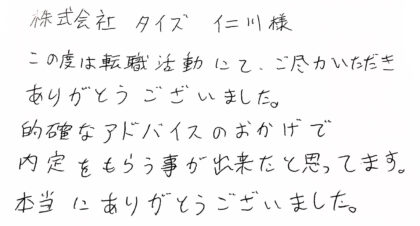 株式会社 タイズ 仁川様
この度は転職活動にて、ご尽力いただき
ありがとうございました。
的確なアドバイスのおかげで
内定をもらう事が出来たと思ってます。
本当にありがとうございました。